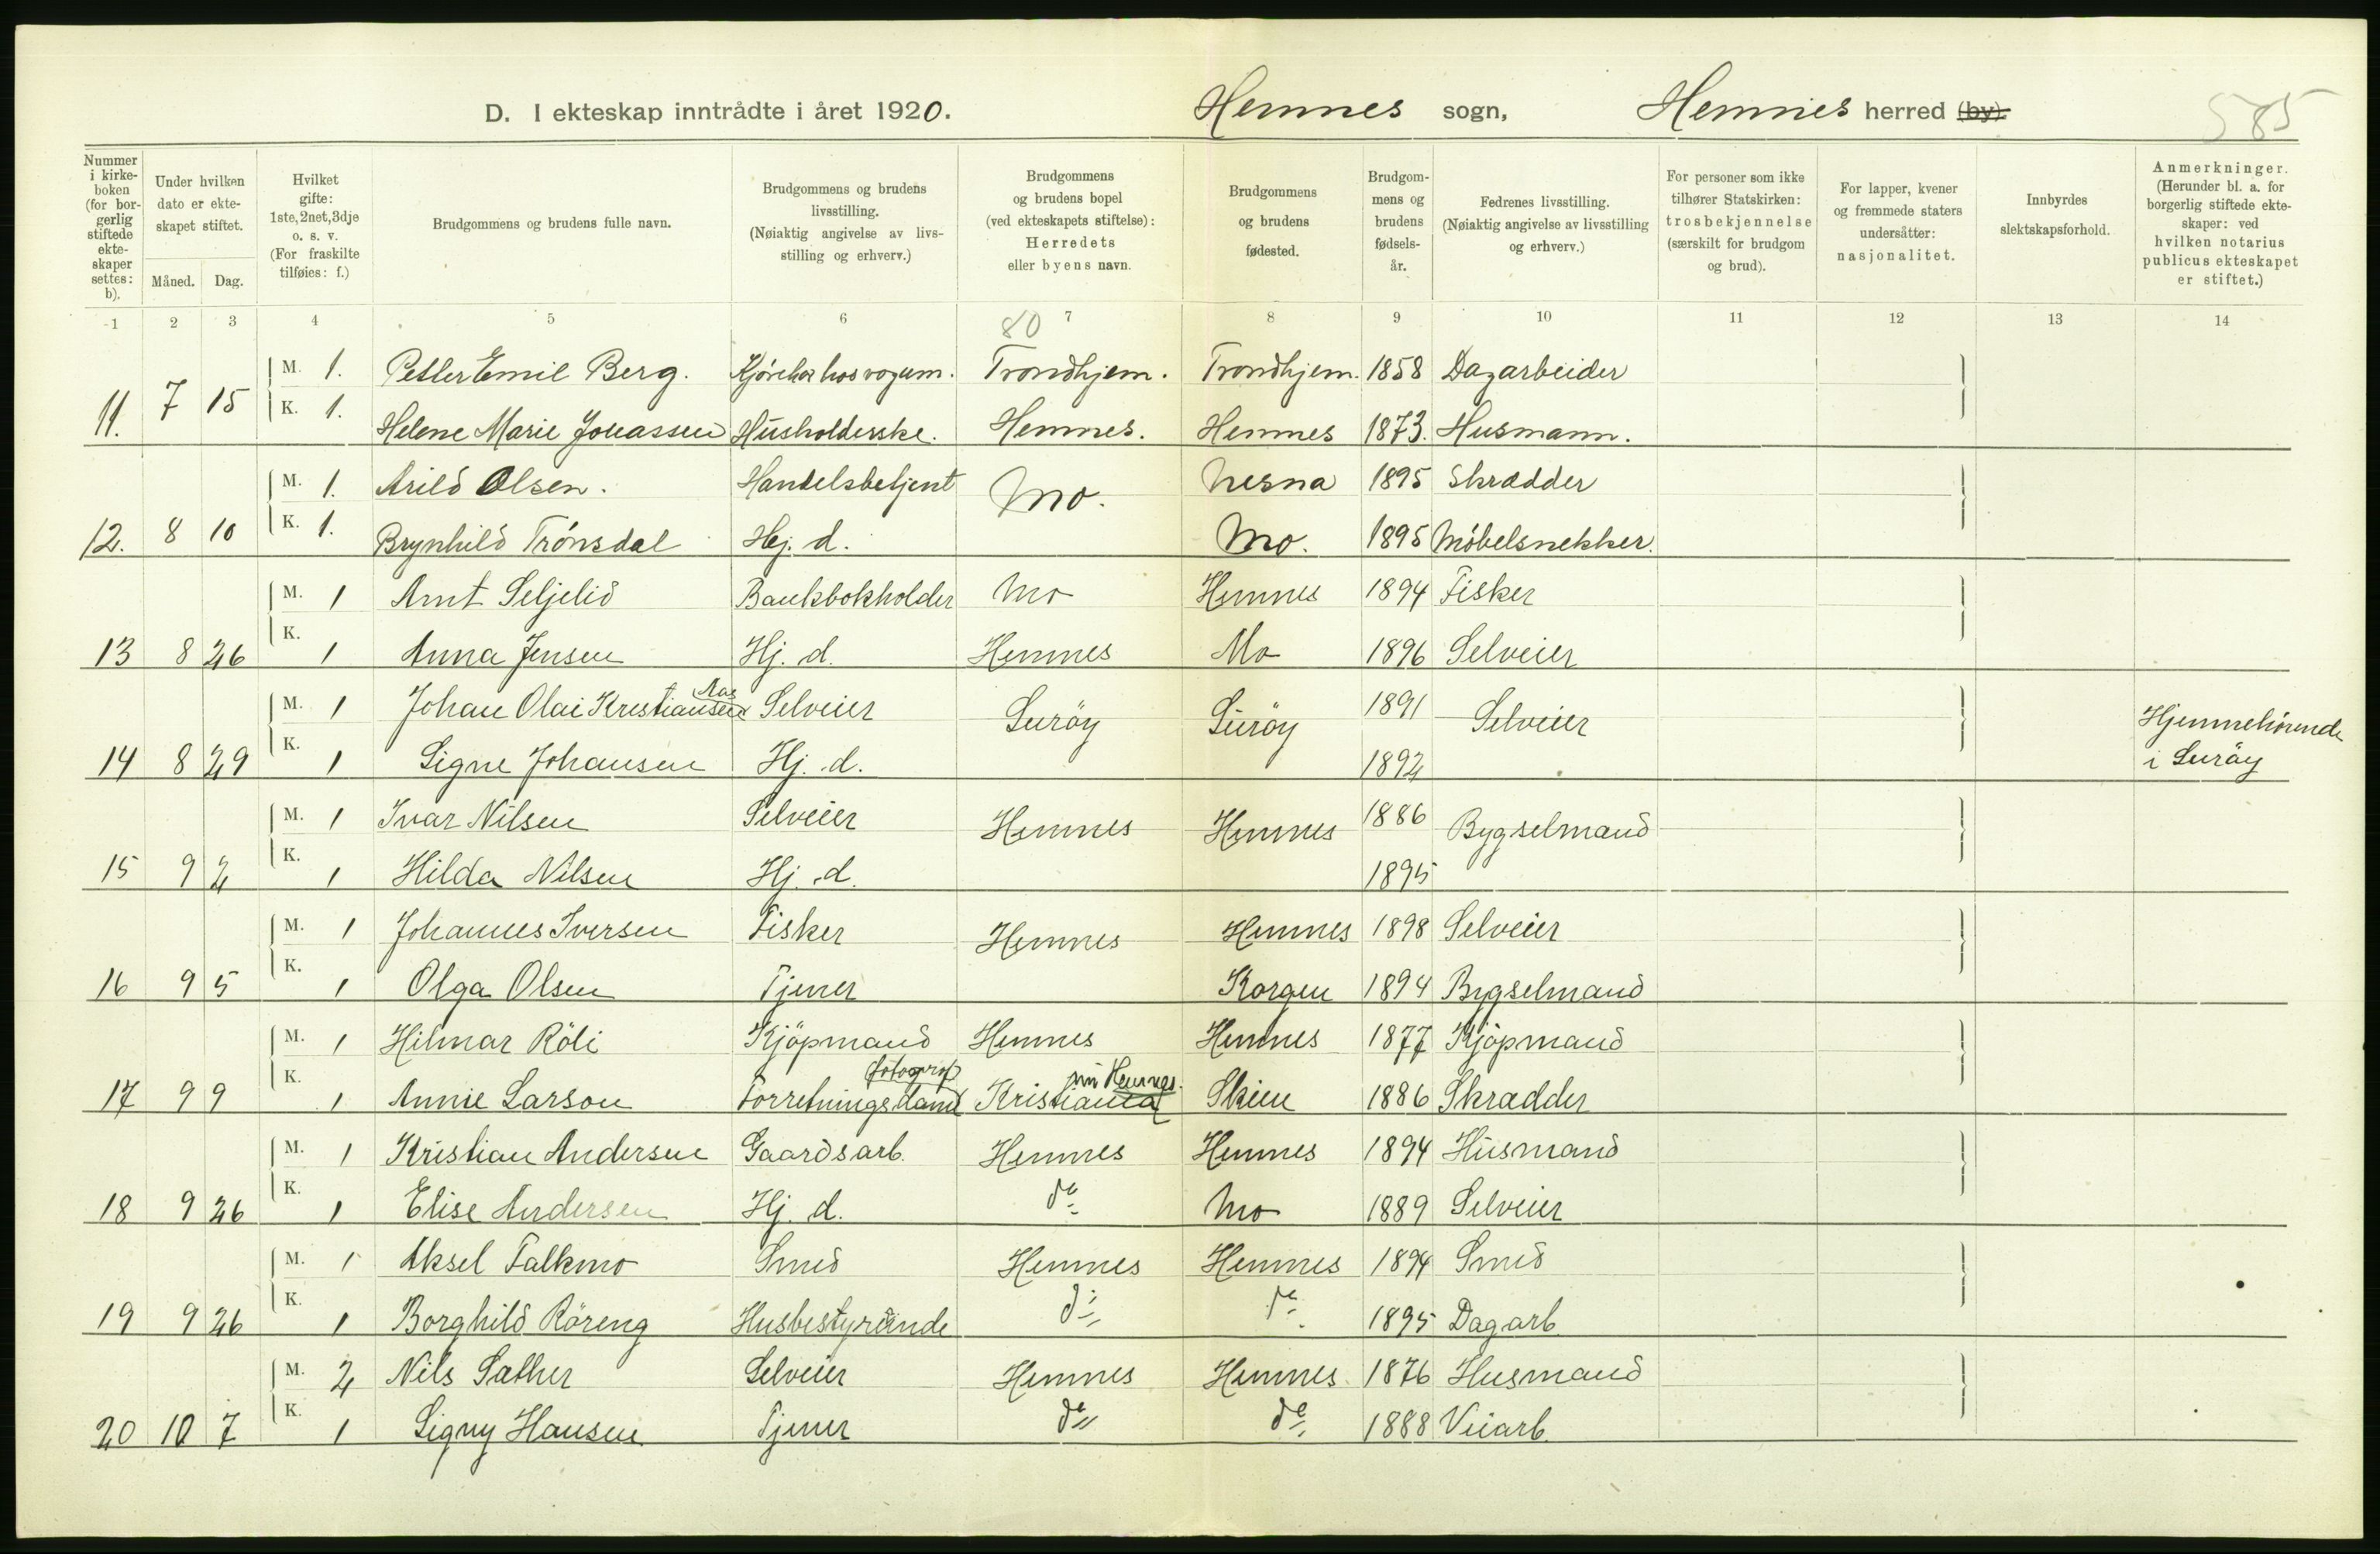 D. I ekteskap inntrådte i året 1920. Hemnes sogn, Hemnes herred (by). 585
Nummer i kirkeboken (for borgerlig stiftede ekteskaper settes: b).
Under hvilken dato er ekteskapet stiftet.
Måned. Dag.
Hvilket gifte: 1ste, 2net, 3dje o. s. v. (For fraskilte tilføies: f.)
Brudgommens og brudens fulle navn.
Brudgommens og brudens livsstilling. (Nøiaktig angivelse av livsstilling og erhverv.)
Brudgommens og brudens bopel (ved ekteskapets stiftelse): Herredets eller byens navn.
Brudgommens og brudens fødested.
Brudgommens og brudens fødselsår.
Fedrenes livsstilling. (Nøiaktig angivelse av livsstilling og erhverv.)
For personer som ikke tilhører Statskirken: trosbekjennelse (særskilt for brudgom og brud).
For lapper, kvener og fremmede staters undersåtter: nasjonalitet.
Innbyrdes slektskapsforhold.
Anmerkninger. (Herunder bl. a. for borgerlig stiftede ekteskaper: ved hvilken notarius publicus ekteskapet er stiftet.)
1 2 3 4 5 6 80 7 8 9 10 11 12 13 14
M. 1. Petter Emil Berg. Trondhjem. Trondhjem. 1858 Dagarbeider
11. 7 15 K. 1. Helene Marie Jonassen Husholderske. Hemnes. Hemnes 1873. Husmann.
M. 1. Arild Olsen. Handelsbetjent Mo. Nesna 1895 Skrædder
12. 8 10 K. 1. Brynhild Trónsdal Hj. d. Mo. 1895 Móbelsnekker.
M. 1 Arnt Seljelid Bankbokholder Mo Hemnes 1894 Fisker
13 8 26 K. 1 Anna Jensen Hj. d. Hemnes Mo 1896 Selveier
M. 1 Johan Olai Kristiansen Aas Selveier Luröy Luröy 1891 Selveier Hjemmehörende
14 8 29 K. 1 Signe Johansen Hj. d. 1892 i Luröy
M. 1 Ivar Nilsen Selveier Hemnes Hemnes 1886 Bygselmand
15 9 2 K. 1 Hilda Nilsen Hj. d. 1895
M. 1 Johannes Iversen Fisker Hemnes Hemnes 1898 Selveier
16 9 5 K. 1 Olga Olsen Tjener Korgen 1894 Bygselmand
M. 1 Hilmar Röli Kjöpmand Hemnes Hemnes 1877 Kjöpmand
fotograf nu Hemnes.
17 9 9 K. 1 Annie Larson Forretningsdame Kristiania Skien 1886 Skrædder
M. 1 Kristian Andersen Gaardsarb. Hemnes Hemnes 1894 Husmand
18 9 26 K. 1 Elise Andersen Hj. d. do Mo 1889 Selveier
M. 1 Aksel Falkmo Smed Hemnes Hemnes 1894 Smed
19 9 26 K. 1 Borghild Röreng Husbestyrende do do 1895 Dagarb.
M. 2 Nils Sæther Selveier Hemnes Hemnes 1876 Husmand
20 10 7 K. 1 Signy Hansen Tjener do do 1888 Veiarb.